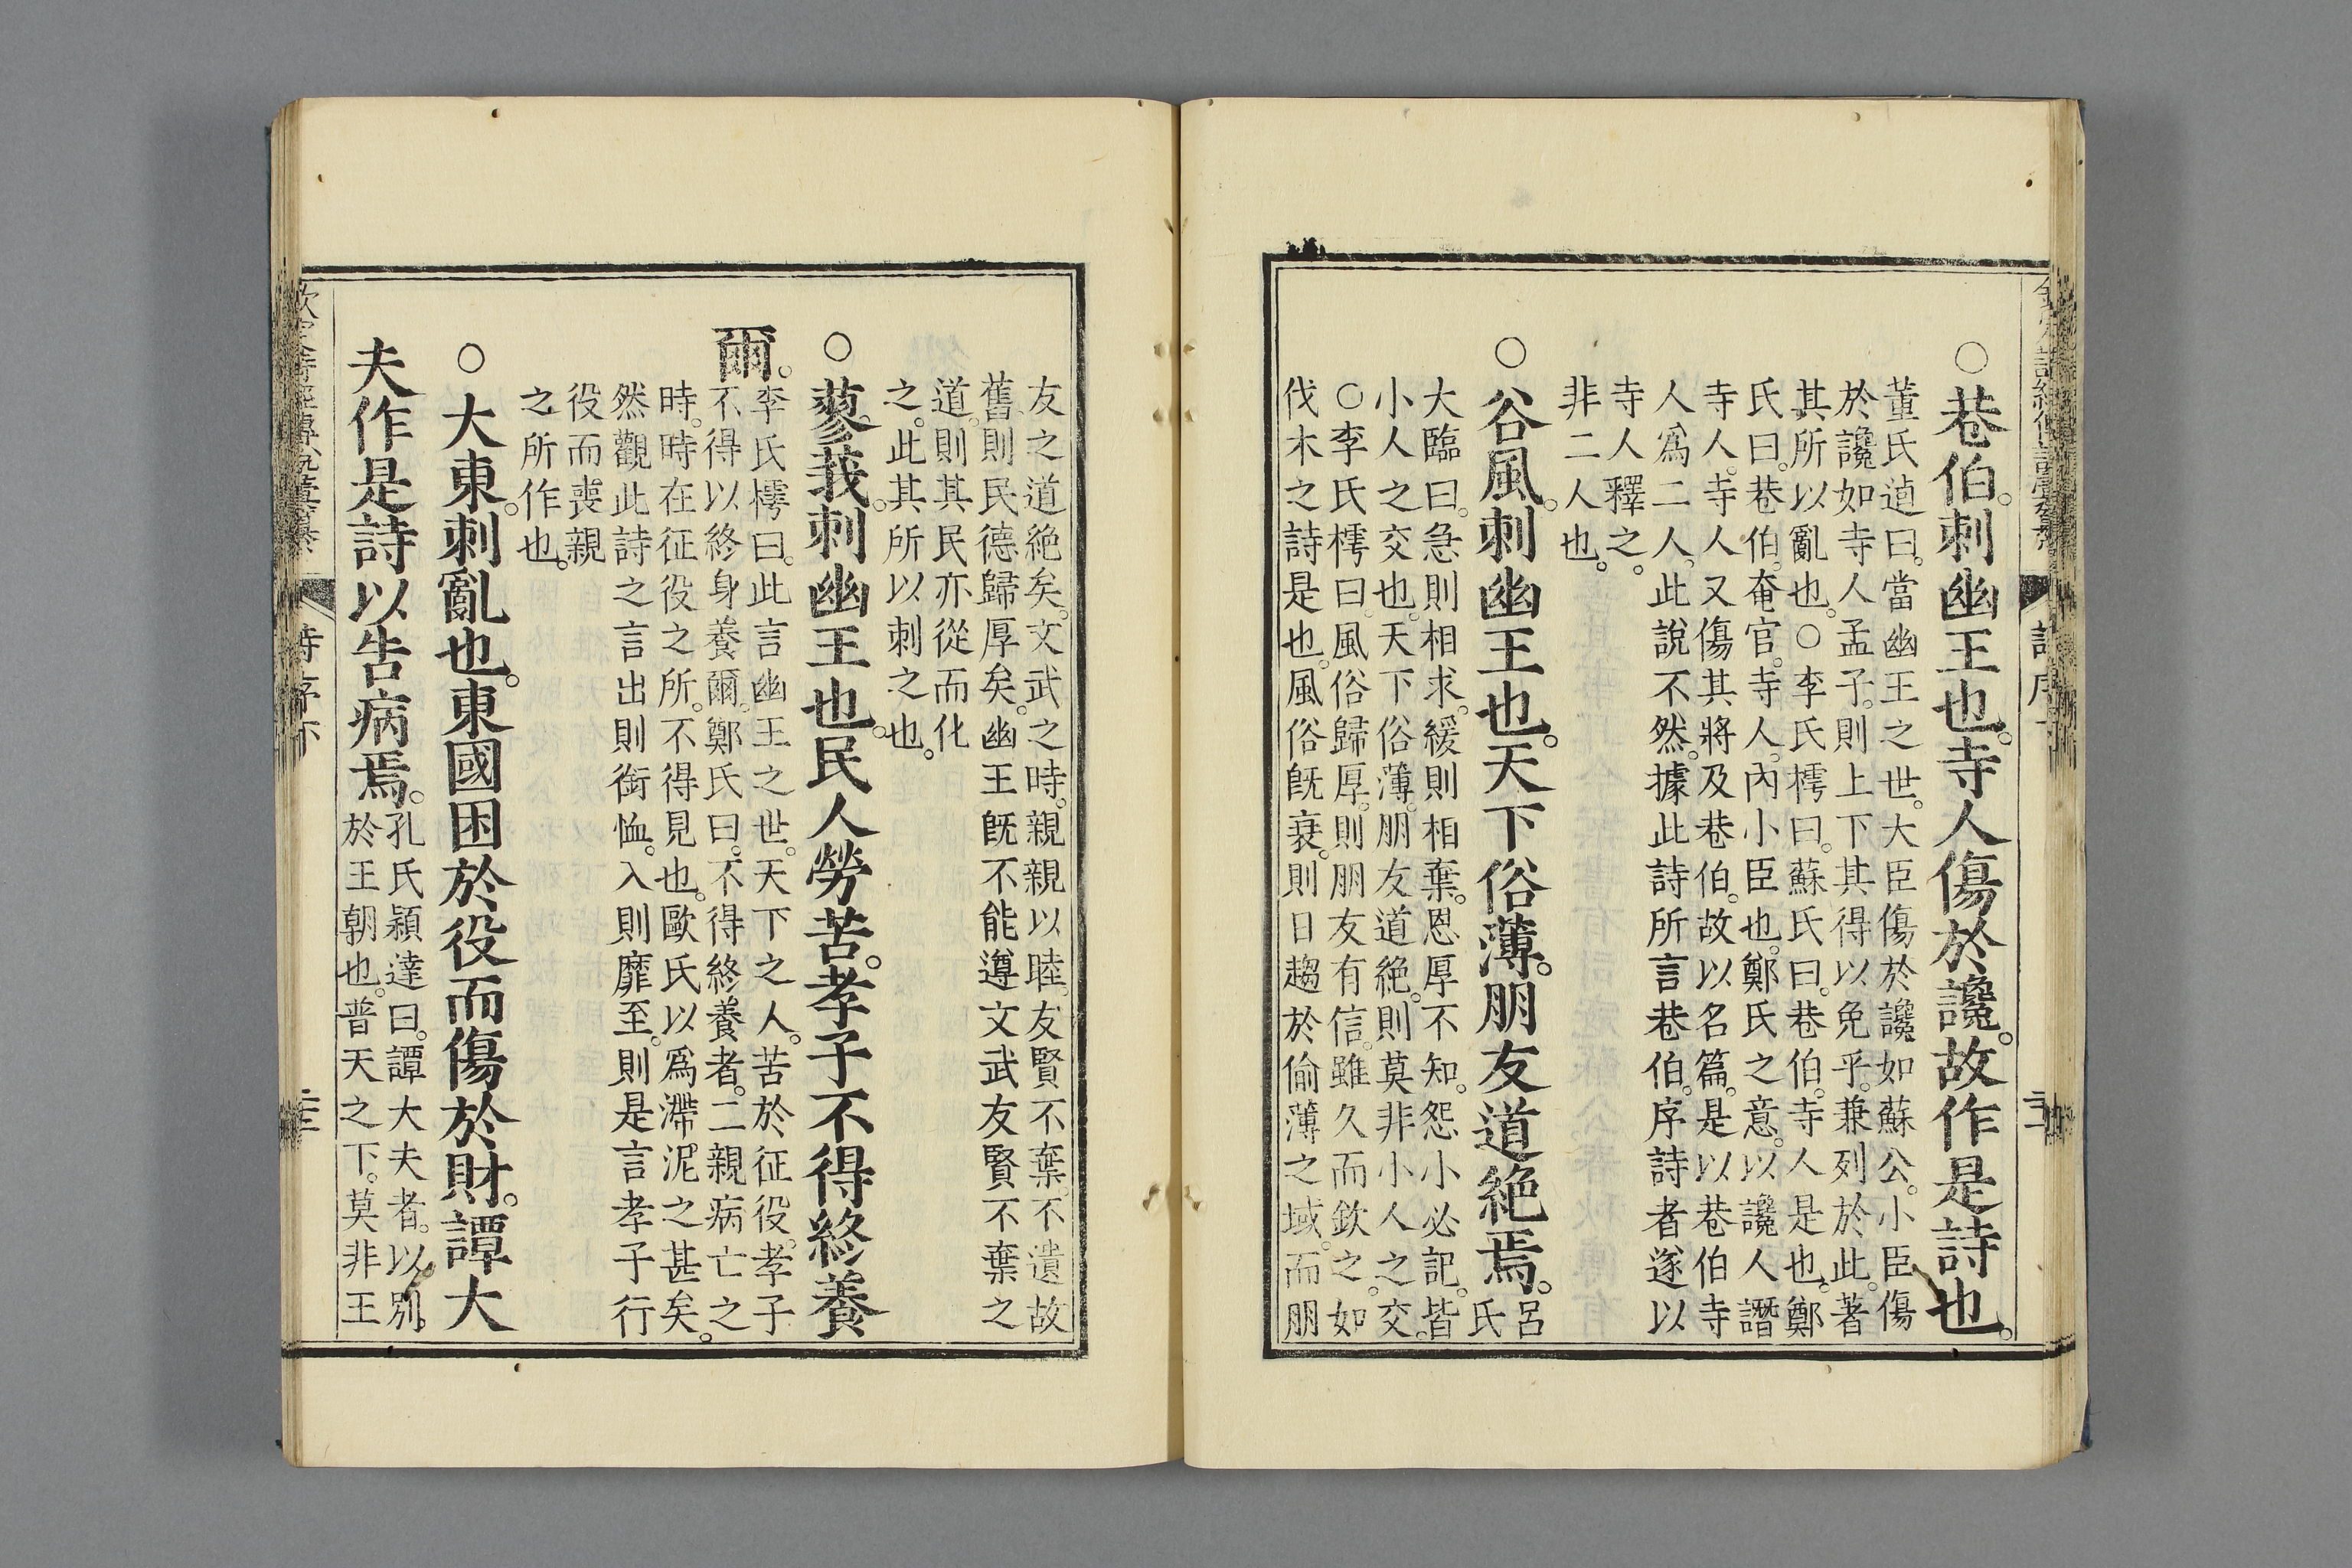 ○巷伯。刺幽王也。寺人傷於讒。故作是詩也。
董氏逌曰。當幽王之世。大臣傷於讒如蘇公。小臣傷
於讒如寺人孟子。則上下其得以免乎。兼列於此。著
其所以亂也。○李氏樗曰。蘇氏曰。巷伯。寺人是也。鄭
氏曰。巷伯。奄官。寺人。內小臣也。鄭氏之意。以讒人譖
寺人。寺人又傷其將及巷伯。故以名篇。是以巷伯寺
人爲二人。此說不然。據此詩所言巷伯。序詩者遂以
寺人釋之。
非二人也。
○谷風。刺幽王也。天下俗薄。朋友道絕焉。呂氏
大臨曰。急則相求。緩則相棄。恩厚不知。怨小必記。皆
小人之交也。天下俗薄。朋友道絕。則莫非小人之交。
○李氏樗曰。風俗歸厚。則朋友有信。雖久而欽之。如
伐木之詩是也。風俗旣衰。則日趨於偷薄之域。而朋
友之道絕矣。文武之時。親親以睦。友賢不棄。不遺故
舊。則民德歸厚矣。幽王旣不能遵文武友賢不棄之
道。則其民亦從而化
之。此其所以刺之也。
○蓼莪。刺幽王也。民人勞苦。孝子不得終養
爾。
李氏樗曰。此言幽王之世。天下之人。苦於征役。孝子
不得以終身養爾。鄭氏曰。不得終養者。二親病亡之
時。時在征役之所。不得見也。歐氏以爲滯泥之甚矣。
然觀此詩之言出則銜恤。入則靡至。則是言孝子行
役而喪親
之所作也。
○大東。刺亂也。東國困於役而傷於財。譚大
夫作是詩以告病焉。
孔氏穎達曰。譚大夫者。以別
於王朝也。普天之下。莫非王
詩序下